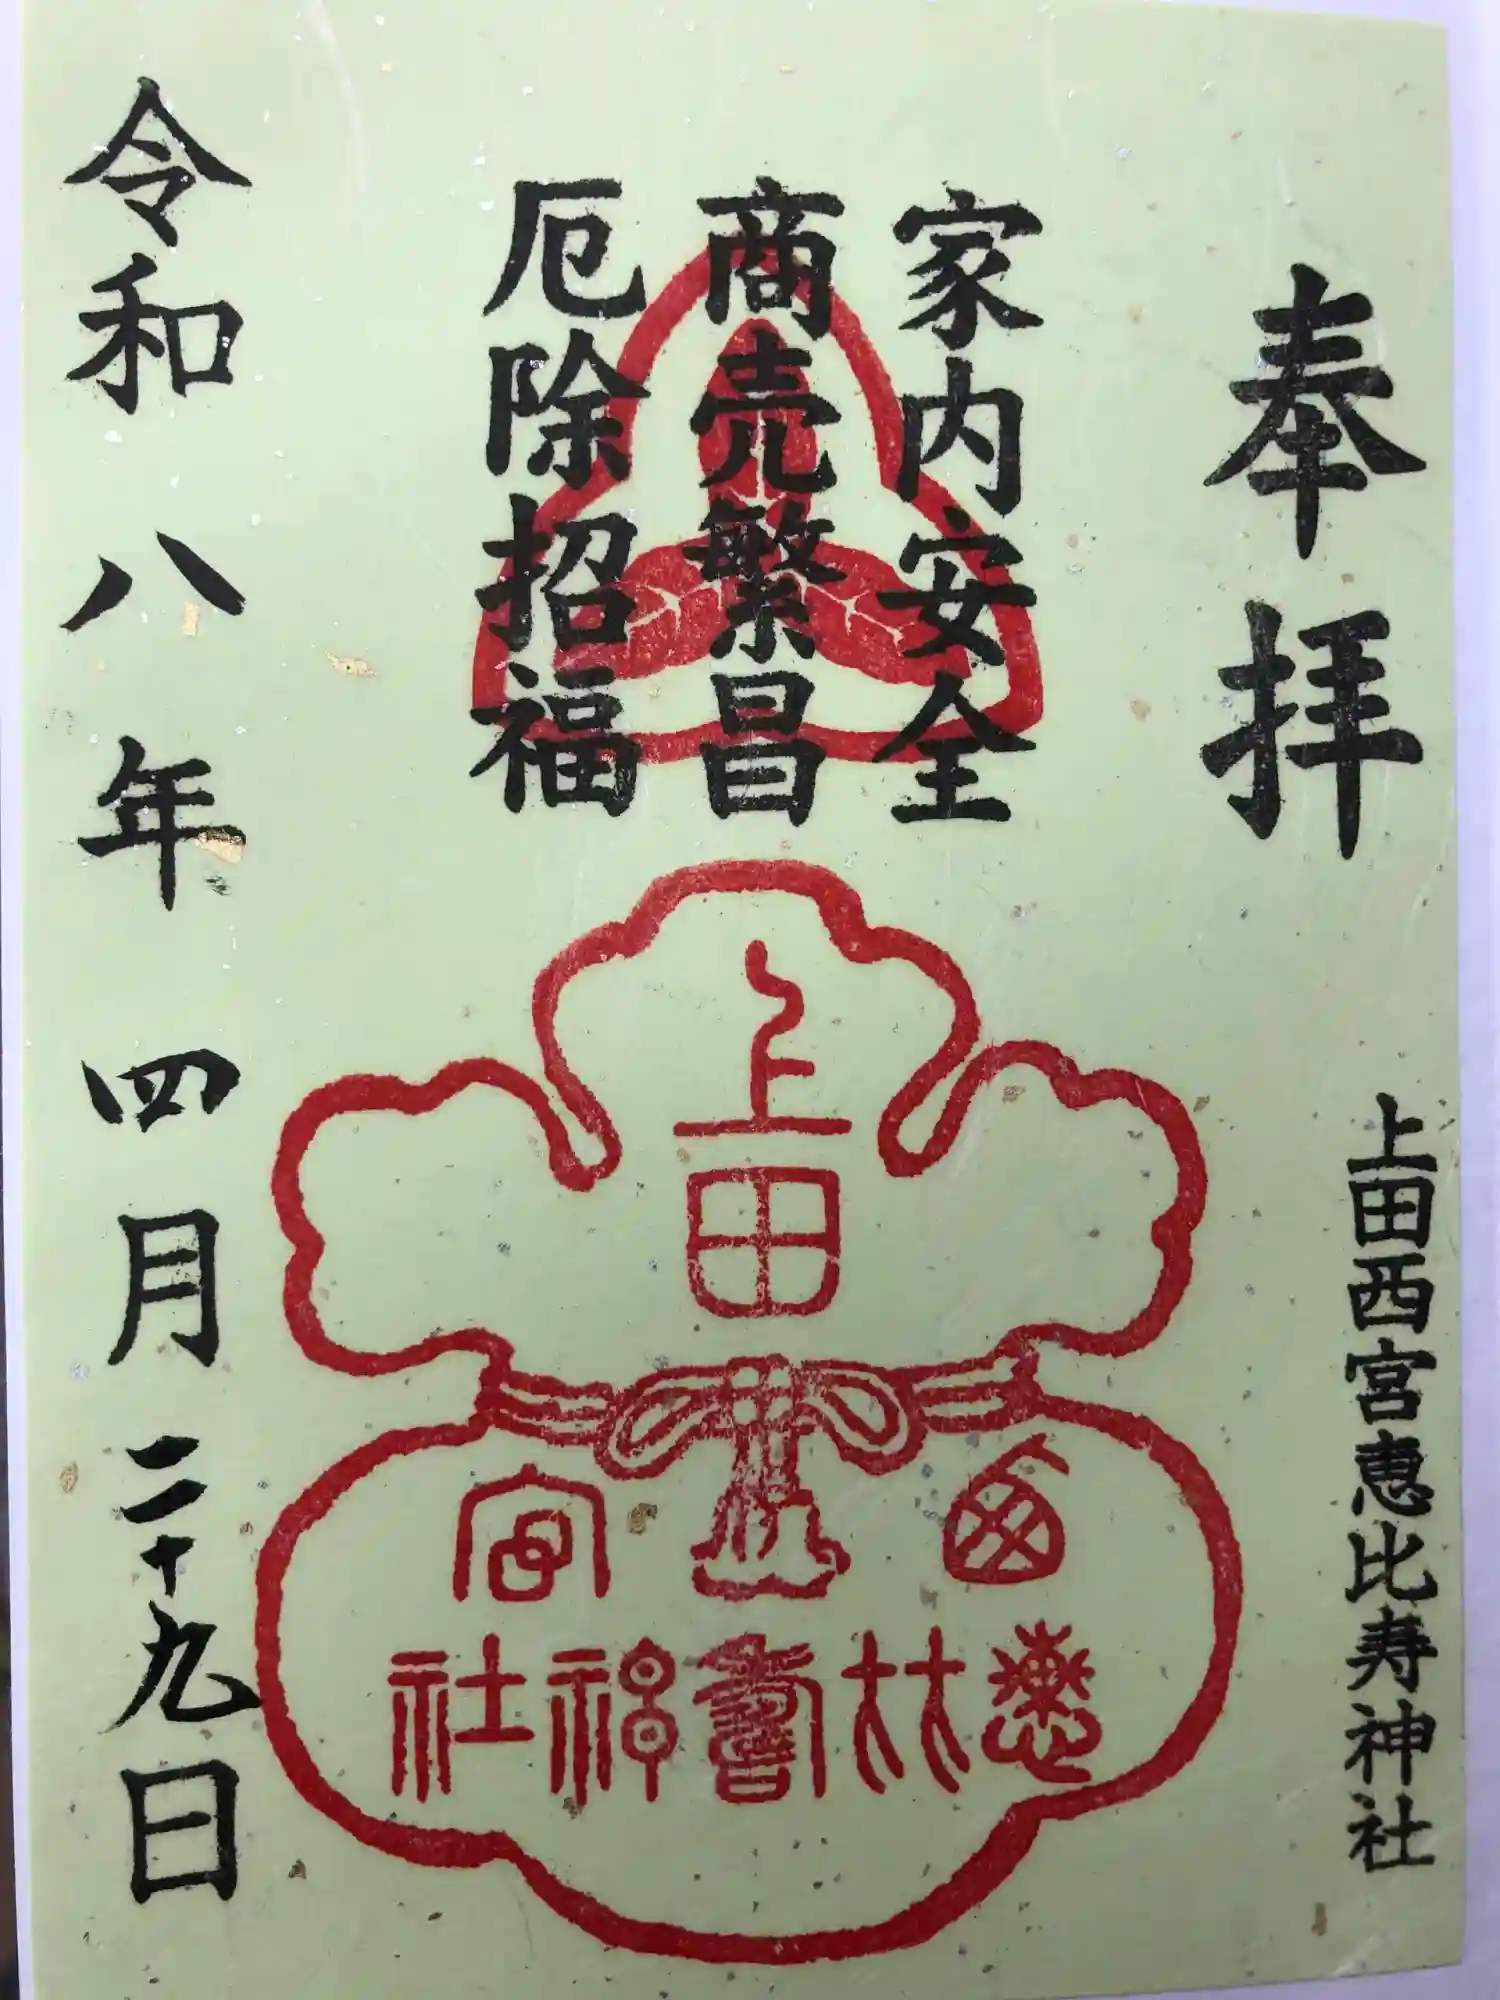 奉拝
上田西宮恵比寿神社
家内安全
商売繁昌
厄除招福
上田
社神
令和八年四月二十九日